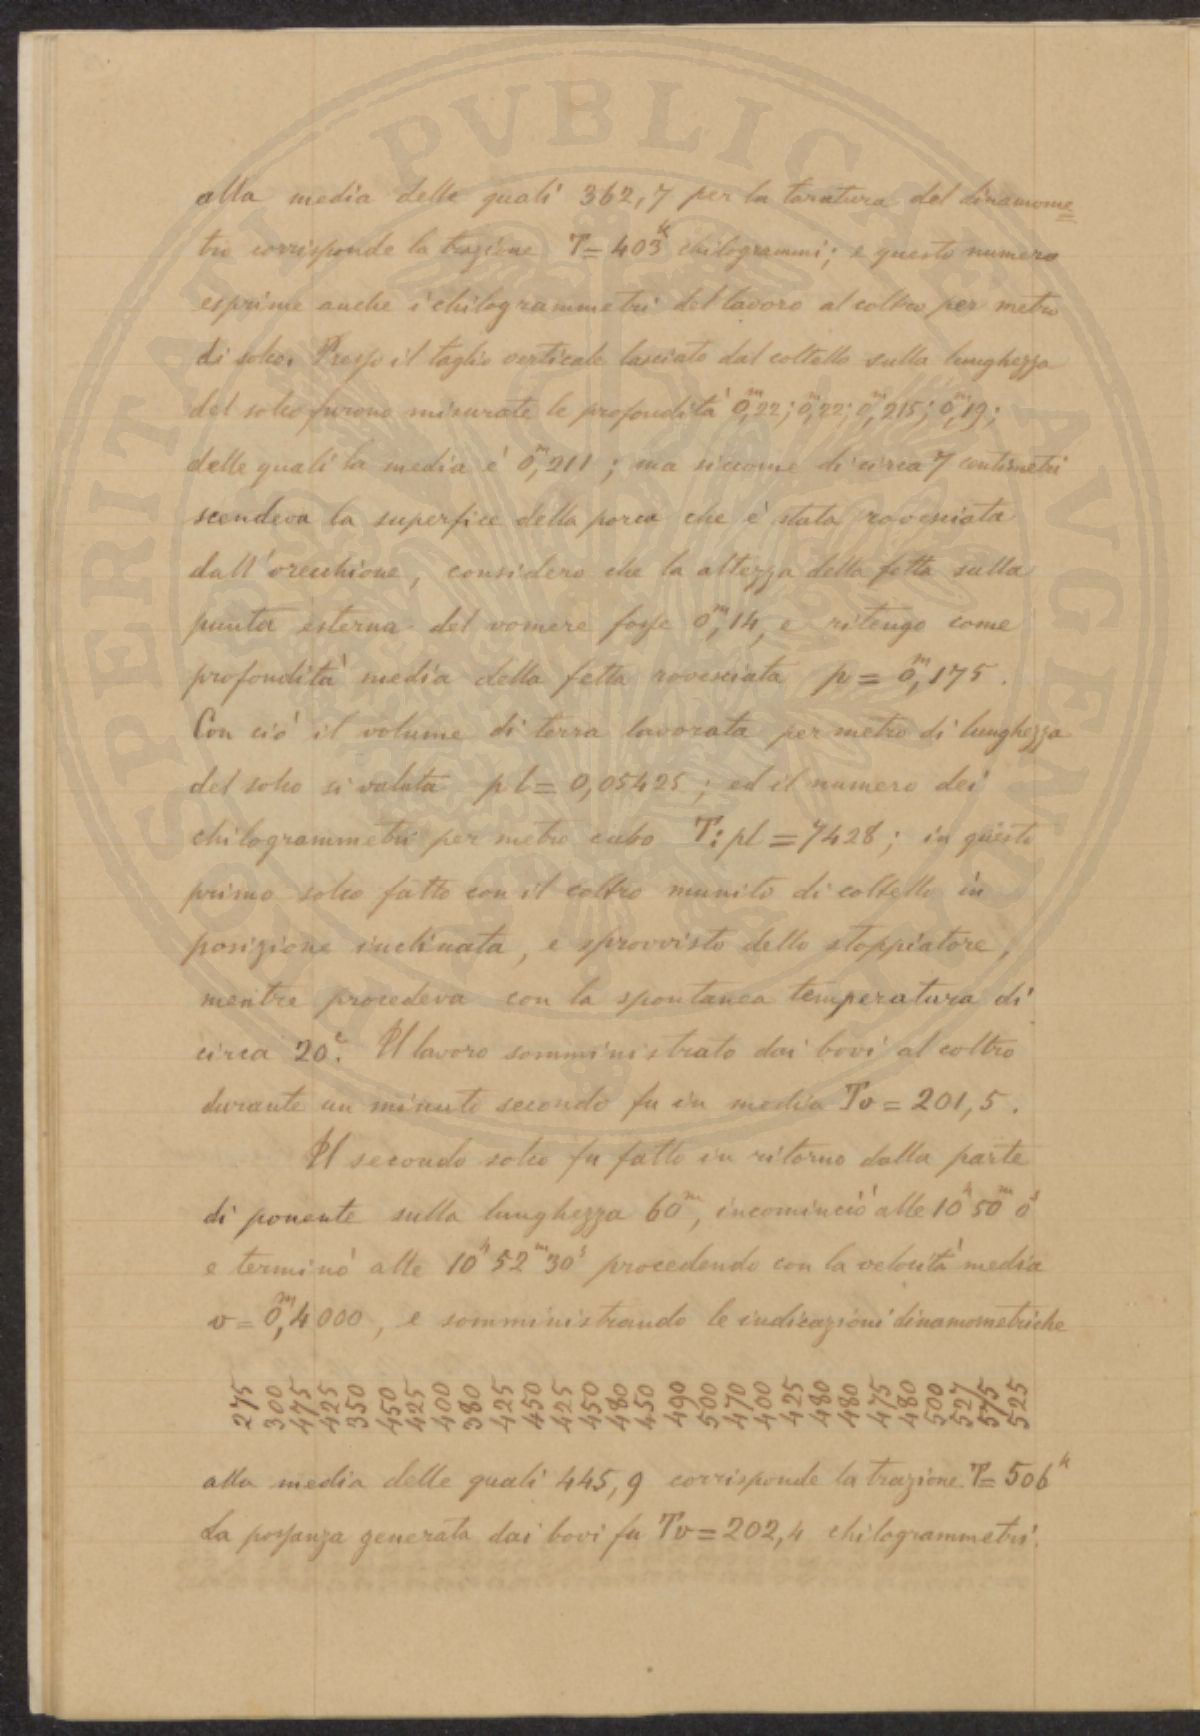 alla media delle quali 362,7 per la taratura del dinamome=
tro corrisponde la trazione T=403ᵏ chilogrammi; e questo numero
esprime anche i chilogrammetri del lavoro al coltro per metro
di solco. Presso il taglio verticale lasciato dal coltello sulla lunghezza
del solco furono misurate le profondità 0,ᵐ22; 0,ᵐ22; 0,ᵐ215; 0,ᵐ19;
delle quali la media è 0,ᵐ211; ma siccome di circa 7 centimetri
scendeva la superfice della porca che è stata rovesciata
dall'orecchione, considero che la altezza della fetta sulla
punta esterna del vomere fosse 0,ᵐ14, e ritengo come
profondità media della fetta rovesciata p=0,ᵐ175.
Con ciò il volume di terra lavorata per metro di lunghezza
del solco si valuta pl=0,05425; ed il numero dei
chilogrammetri per metro cubo T:pl=7428; in questo
primo solco fatto con il coltro munito di coltello in
posizione inclinata, e sprovvisto dello stoppiatore,
mentre procedeva con la spontanea temperatura di
circa 20ᶜ. Il lavoro somministrato dai bovi al coltro
durante un minuto secondo fu in media Tv=201,5.
Il secondo solco fu fatto in ritorno dalla parte
di ponente sulla lunghezza 60ᵐ, incominciò alle 10ʰ 50ᵐ 0ˢ
e terminò alle 10ʰ 52ᵐ 30ˢ procedendo con la velocità media
v=0,ᵐ4000, e somministrando le indicazioni dinamometriche
275 300 475 425 350 450 425 400 380 425 450 425 450 480 450 490 500 470 400 425 480 480 475 480 500 527 575 525
alla media delle quali 445,9 corrisponde la trazione T=506ᵏ
La possanza generata dai bovi fu Tv=202,4 chilogrammetri.
PROSPERITATI PVBLICAE AVGENDAE